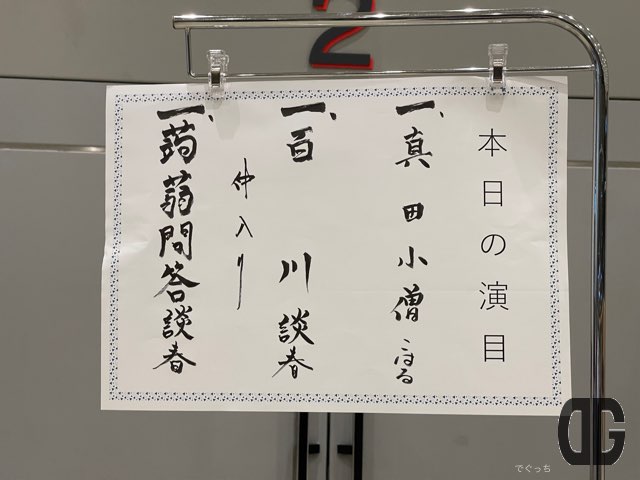 2
本日の演目
一、真田小僧 こはる
一、百川 談春
仲入り
一、蒟蒻問答 談春
でぐっち
DG